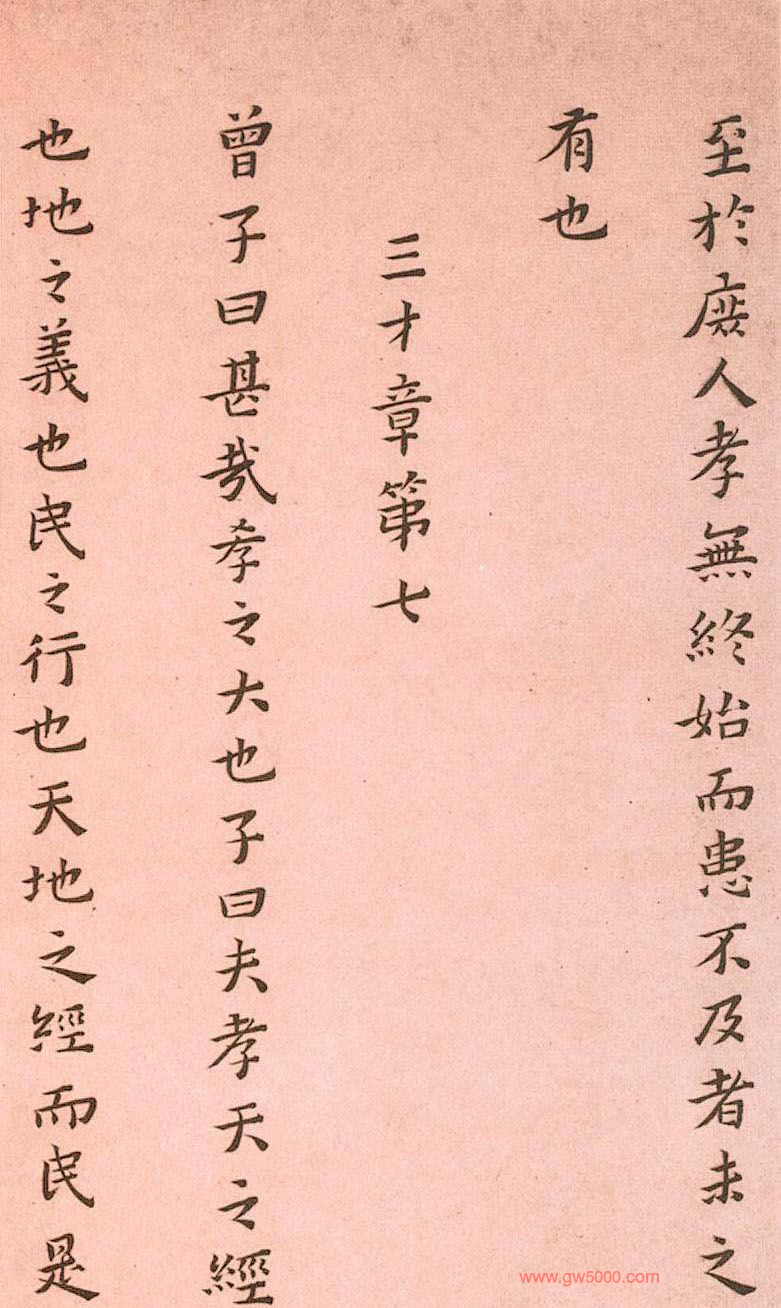 至於庶人孝無終始而患不及者未之
有也
三才章第七
曾子曰甚哉孝之大也子曰夫孝天之經
也地之義也民之行也天地之經而民是
www.gw5000.com